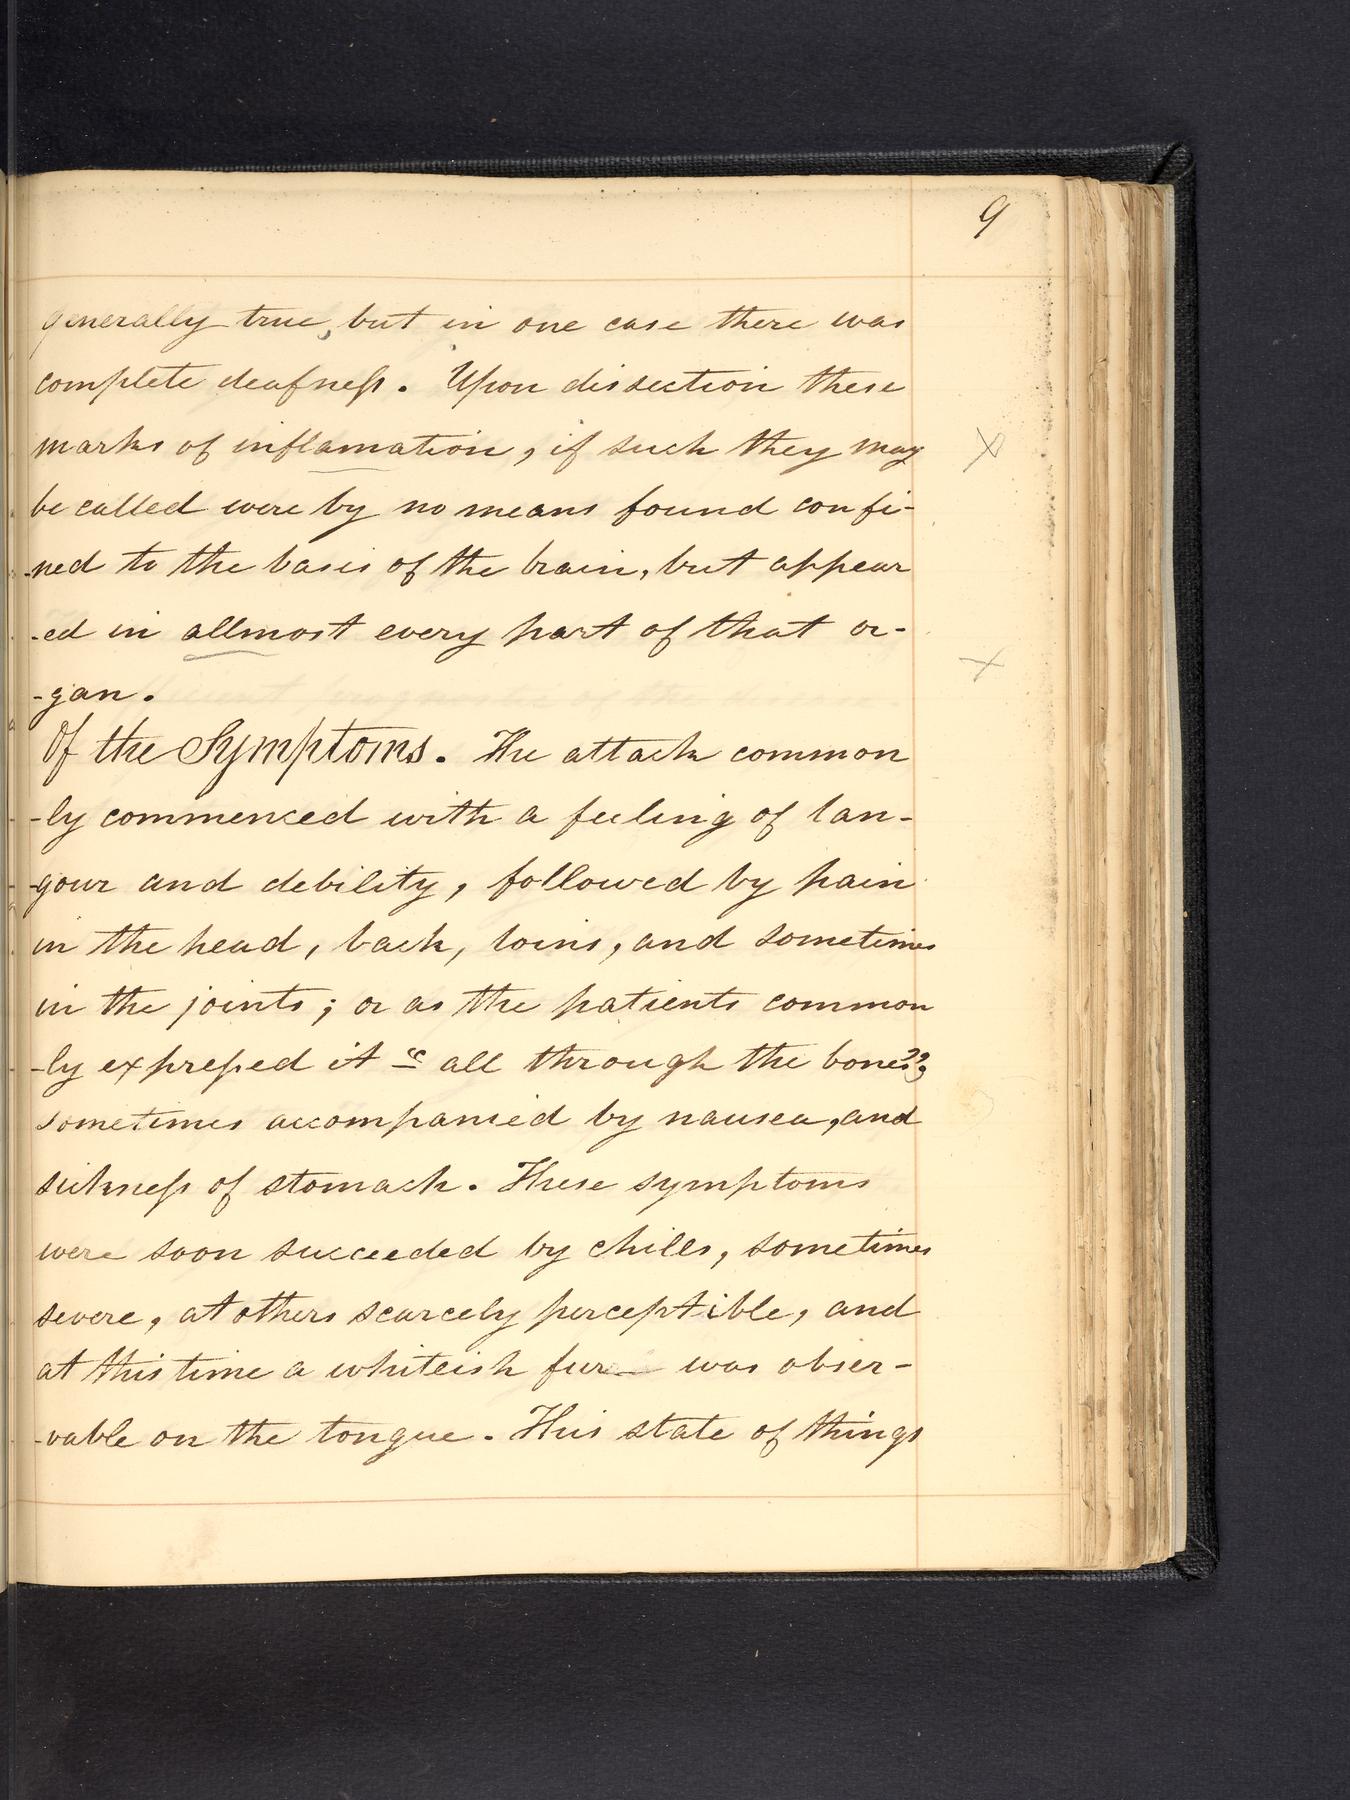 9
generally true, but in one case there was
complete deafness. Upon dissection these
marks of inflamation, if such they may
be called were by no means found confi-
-ned to the basis of the brain, but appear
-ed in allmost every part of that or-
-gan.
Of the Symptoms. The attack common
-ly commenced with a feeling of lan-
-gour and debility, followed by pain
in the head, back, loins, and sometimes
in the joints; or as the patients common
-ly expressed it "all through the bones";
sometimes accompanied by nausea, and
sickness of stomach. These symptoms
were soon succeeded by chills, sometimes
severe, at others scarcely perceptible, and
at this time a whiteish fur was obser-
-vable on the tongue. This state of things